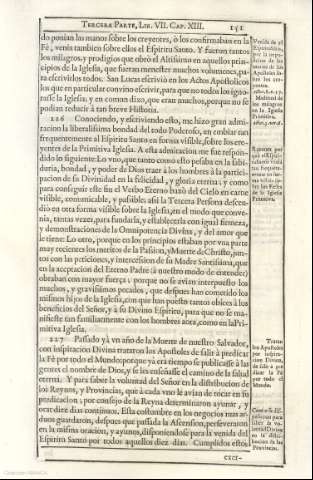 TERCERA PARTE, LIB. VII. CAP. XIII. 151
do ponian las manos sobre los creyentes, ò los confirmaban en la
Fè, venìa tambien sobre ellos el Espiritu Santo. Y fueron tantos
los milagros, y prodigios que obrò el Altissimo en aquellos prin-
cipios de la Iglesia, que fueran menester muchos volumenes, pa-
ra escrivirlos todos. San Lucas escriviò en los Actos Apostolicos
los que en particular convino escrivir, para que no todos los igno-
rasse la Iglesia; y en comun dize, que eran muchos, porque no se
podian reducir à tan breve Historia.
226 Conociendo, y escriviendo esto, me hizo gran admi-
racion la liberalissima bondad del todo Poderoso, en embiar tan
frequentemente al Espiritu Santo en forma visible, sobre los cre-
yentes de la Primitiva Iglesia. A esta admiracion me fue respon-
dido lo siguiente: Lo vno, que tanto como esto pesaba en la sabi-
duria, bondad, y poder de Dios traer à los hombres à la partici-
pacion de su Divinidad en la felicidad, y gloria eterna; y como
para conseguir este fin el Verbo Eterno baxò del Cielo en carne
visible, comunicable, y passible; assi la Tercera Persona descen-
diò en otra forma visible sobre la Iglesia, en el modo que conve-
nia, tantas vezes, para fundarla, y establecerla con igual firmeza,
y demonstraciones de la Omnipotencia Divina, y del amor que
le tiene: Lo otro, porque en los principios estaban por vna parte
muy recientes los meritos de la Passion, y Muerte de Christo, jun-
tos con las peticiones, y intercession de su Madre Santissima, que
en la aceptacion del Eterno Padre (à nuestro modo de entender)
obraban con mayor fuerça; porque no se avian interpuesto los
muchos, y gravissimos pecados, que despues han cometido los
mismos hijos de la Iglesia, con que han puesto tantos obices à los
beneficios del Señor, y à su Divino Espiritu, para que no se ma-
nifieste tan familiarmente con los hombres aora, como en la Pri-
mitiva Iglesia.
227 Passado yà vn año de la Muerte de nuestro Salvador,
con inspiracion Divina trataron los Apostoles de salir à predicar
la Fè por todo el Mundo; porque yà era tiempo se publicasse à las
gentes el nombre de Dios, y se les enseñasse el camino de la salud
eterna. Y para saber la voluntad del Señor en la distribucion de
los Reynos, y Provincias, que à cada vno le avian de tocar en su
predicacion; por consejo de la Reyna determinaron ayunar, y
orar diez dias continuos. Esta costumbre en los negocios mas ar-
duos guardaron, despues que passada la Ascension, perseveraron
en la misma oracion, y ayunos, disponiendose para la venida del
Espiritu Santo por todos aquellos diez dias. Cumplidos estos
Primitiva.
la Iglesia
Primitiva.
Tratan
los Apostoles
por inspira-
cion Divina,
de salir à pre-
dicar la Fè
por todo el
Mundo.
Provincias.